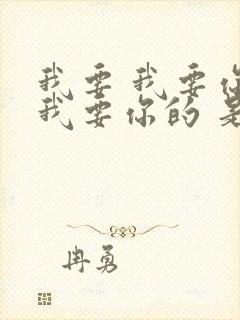 我要我要你
我要你的是
冉勇